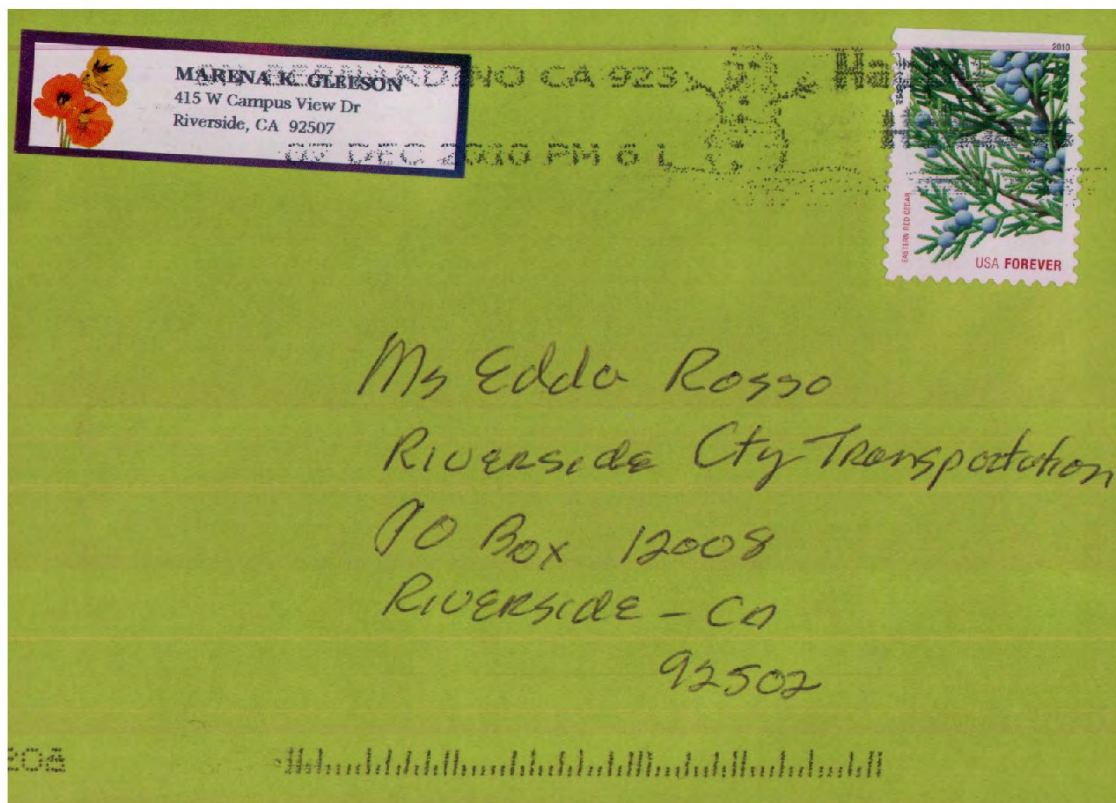 MARENA K. GLEESON
415 W Campus View Dr
Riverside, CA 92507
BERNARDINO CA 923
07 DEC 2010 PM 6 L
2010
EASTERN RED CEDAR
USA FOREVER
Ms Edda Rosso
Riverside Cty Transportation
PO Box 12008
Riverside - CA
92502
208